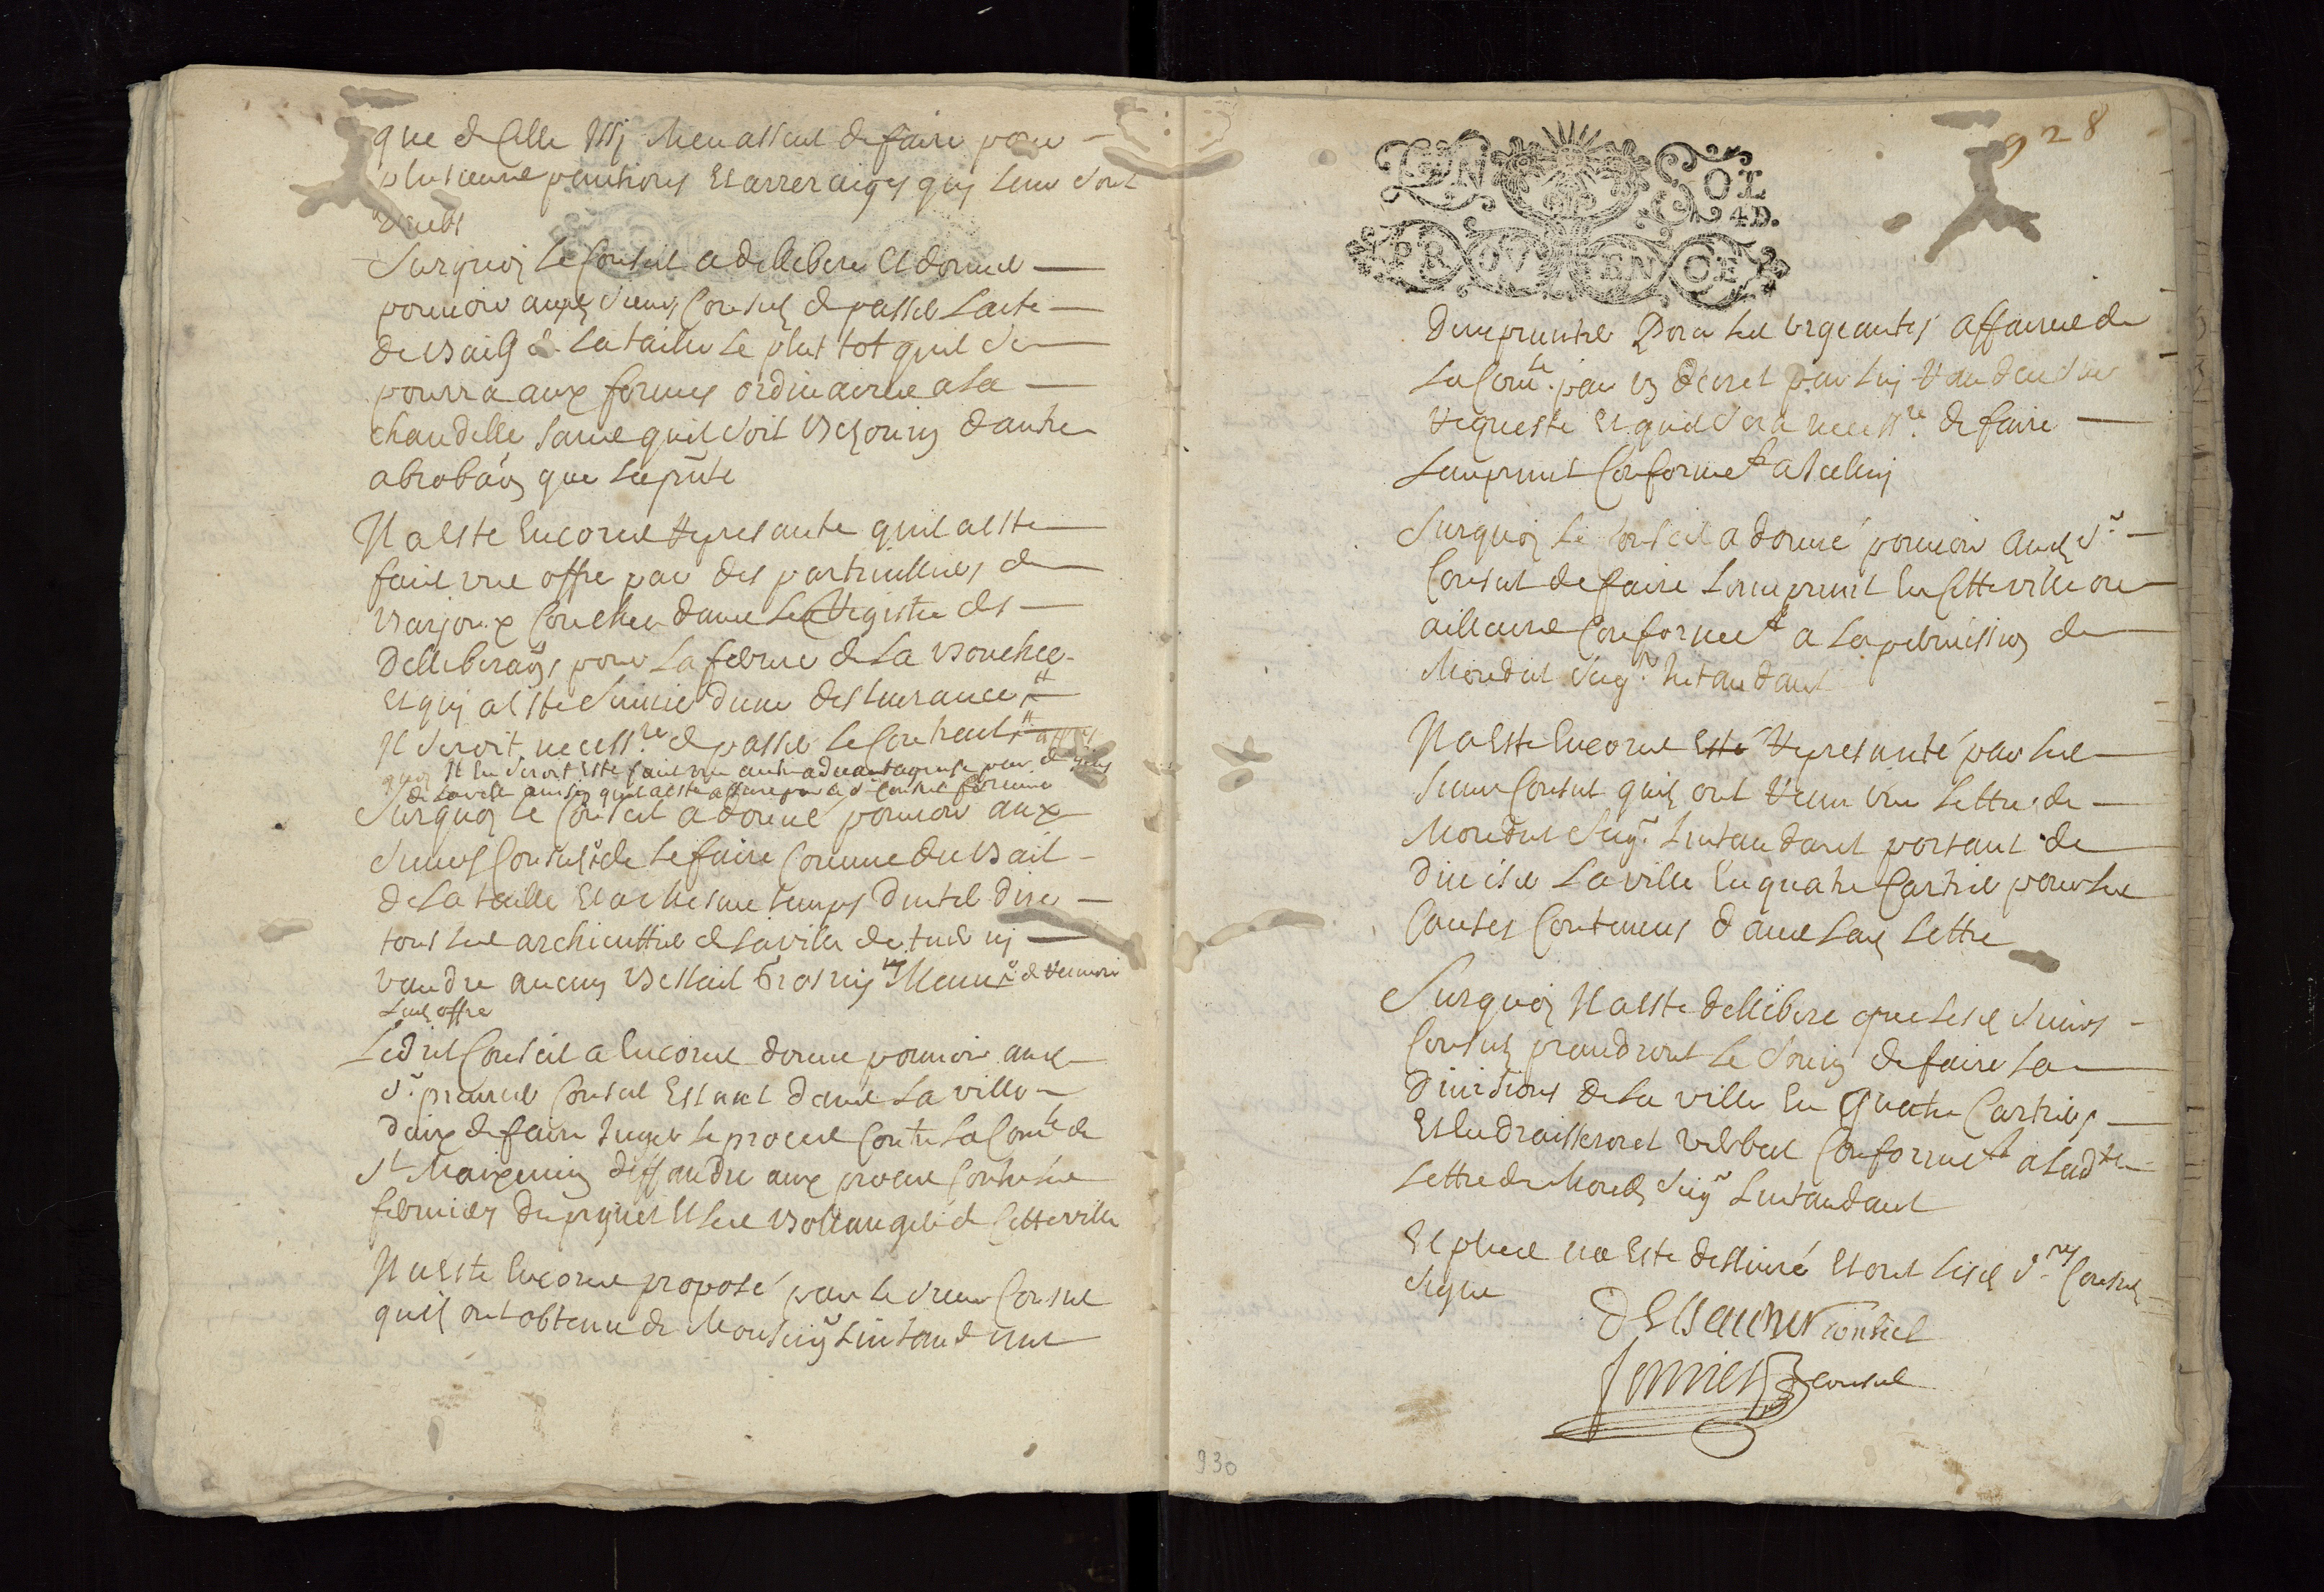 que de Celle Issi Menassent de faire pour
plusieurs pentions Et arreraiges quy Leur sont
deubs
Surquoy Le Conseil a dellibere Et donne
pouvoir auxd sieurs Consulz de passer Lacte
de bail de La taille Le plus tot quil se
pourra aux formes ordinaires a la
chandelle sans quil soit besoing dautre
que Lapnte
Il a Este Encores Represante quil a este
faict une offre par des particulliers de
barjoux Couchee dans Le Registre des
Delliberaons pour La ferme de La boucherie
Et quy a Este suivie dune
Il seroit necessre de passer Le Contract
quoy Il En seroit Este faict une autre advantageuse pour
de La ville ainsin quil a este assure par consul
Surquoy Le Conseil a donne pouvoir aux
sieurs Consulz de Le faire Comme du bail
de La taille Et a mesme temps dinterdire
tous Les de La ville de tuer ny
vandre aucung bestail Gros ny Menu
Lad offre
Ledict Conseil a Encores donne pouvoir aud
sr premier Consul Estant dans La ville
daix de faire Juger Le proces Contre La Comte de
St Maixemin deffandre aux proces Contre Les
fermiers du piquet Et Les boullangers de Cette ville
Il a Este Encores propose par Le sieur Consul
quilz ont obtenu de Monseigr Lintandant
928
UN SOL
4 D.
PROUVENCE
Demprunter Pour Les Urgeantes affaires de
La Comte par un decret par Luy Randeu sur
Requeste Et quil sera necessre de faire
Lemprunt Conformemt a Icelluy
Surquoy Le Conseil a donné pouvoir aud sr
Consul de faire Lemprunt En Cette ville ou
ailleurs Conformemt a La permission de
Mondict seigr Intandant
Il a Este Encores Esté Represanté par Les
sieurs Consulz quilz ont Receu une Lettre de
Mondict seigr Lintandant portant de
Diviser La ville En quatre Cartiers pour Les
Causes Contenues dans Lad Lettre
Surquoy Il a este dellibere que Lesd sieurs
Consulz prandront Le soing de faire La
Divisions de La ville En Quatre Cartiers
Et En draisseront verbal Conformemt a Ladte
Lettre de Mond seigr Lintandant
Et plus na Este dellivré Et ont Lesd srs Consulz
signe
consul
consul
930